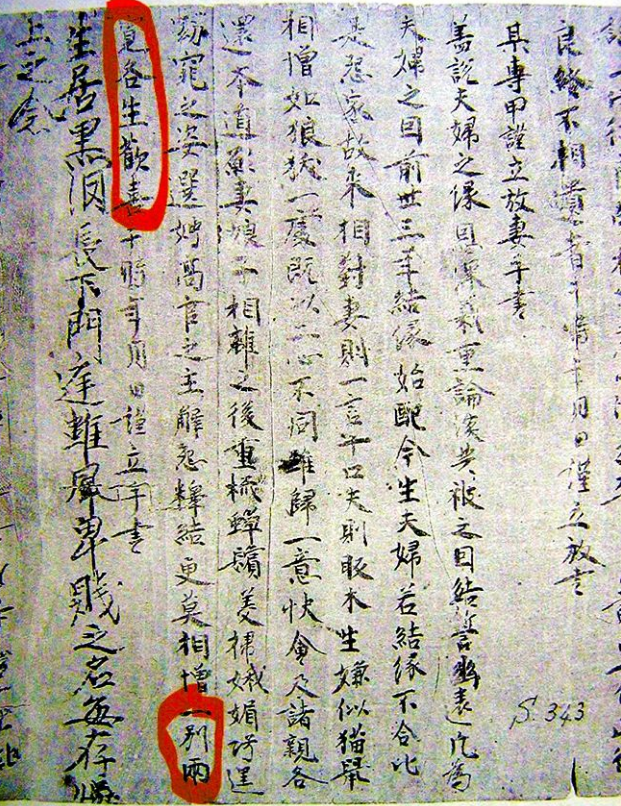 者于時年月日謹立放書
某專甲謹立放妻手書
盖說夫婦之緣恩深義重論談共被之因結誓幽遠凡為
夫婦之因前世三年結緣始配今生夫婦若結緣不合比
是怨家故來相對妻則一言十口夫則木生嫌似猫鼠
相憎如狼一處既以二心不同難歸一意快會及諸親各
還本道願妻娘子相離之後重梳蟬鬢美裙娥媚巧逞
窈窕之姿選娉高官之主解怨釋結更莫相憎一別兩
寬各生歡喜于時年月日謹立手書
生居黑長下門庭雖屬卑賤之名每存
上之念
S.343